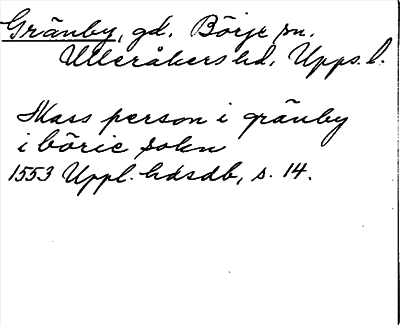 Gränby, gd. Börje sn.
Ulleråkers hd, Upps. l.
Mass person i gränby
i börie sokn
1553 Uppl. hdsdb, s. 14.